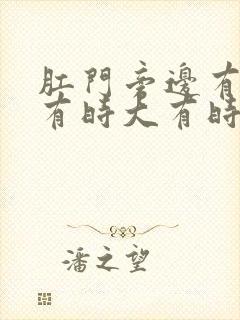 肛門旁邊有
有時大有時
潘之望